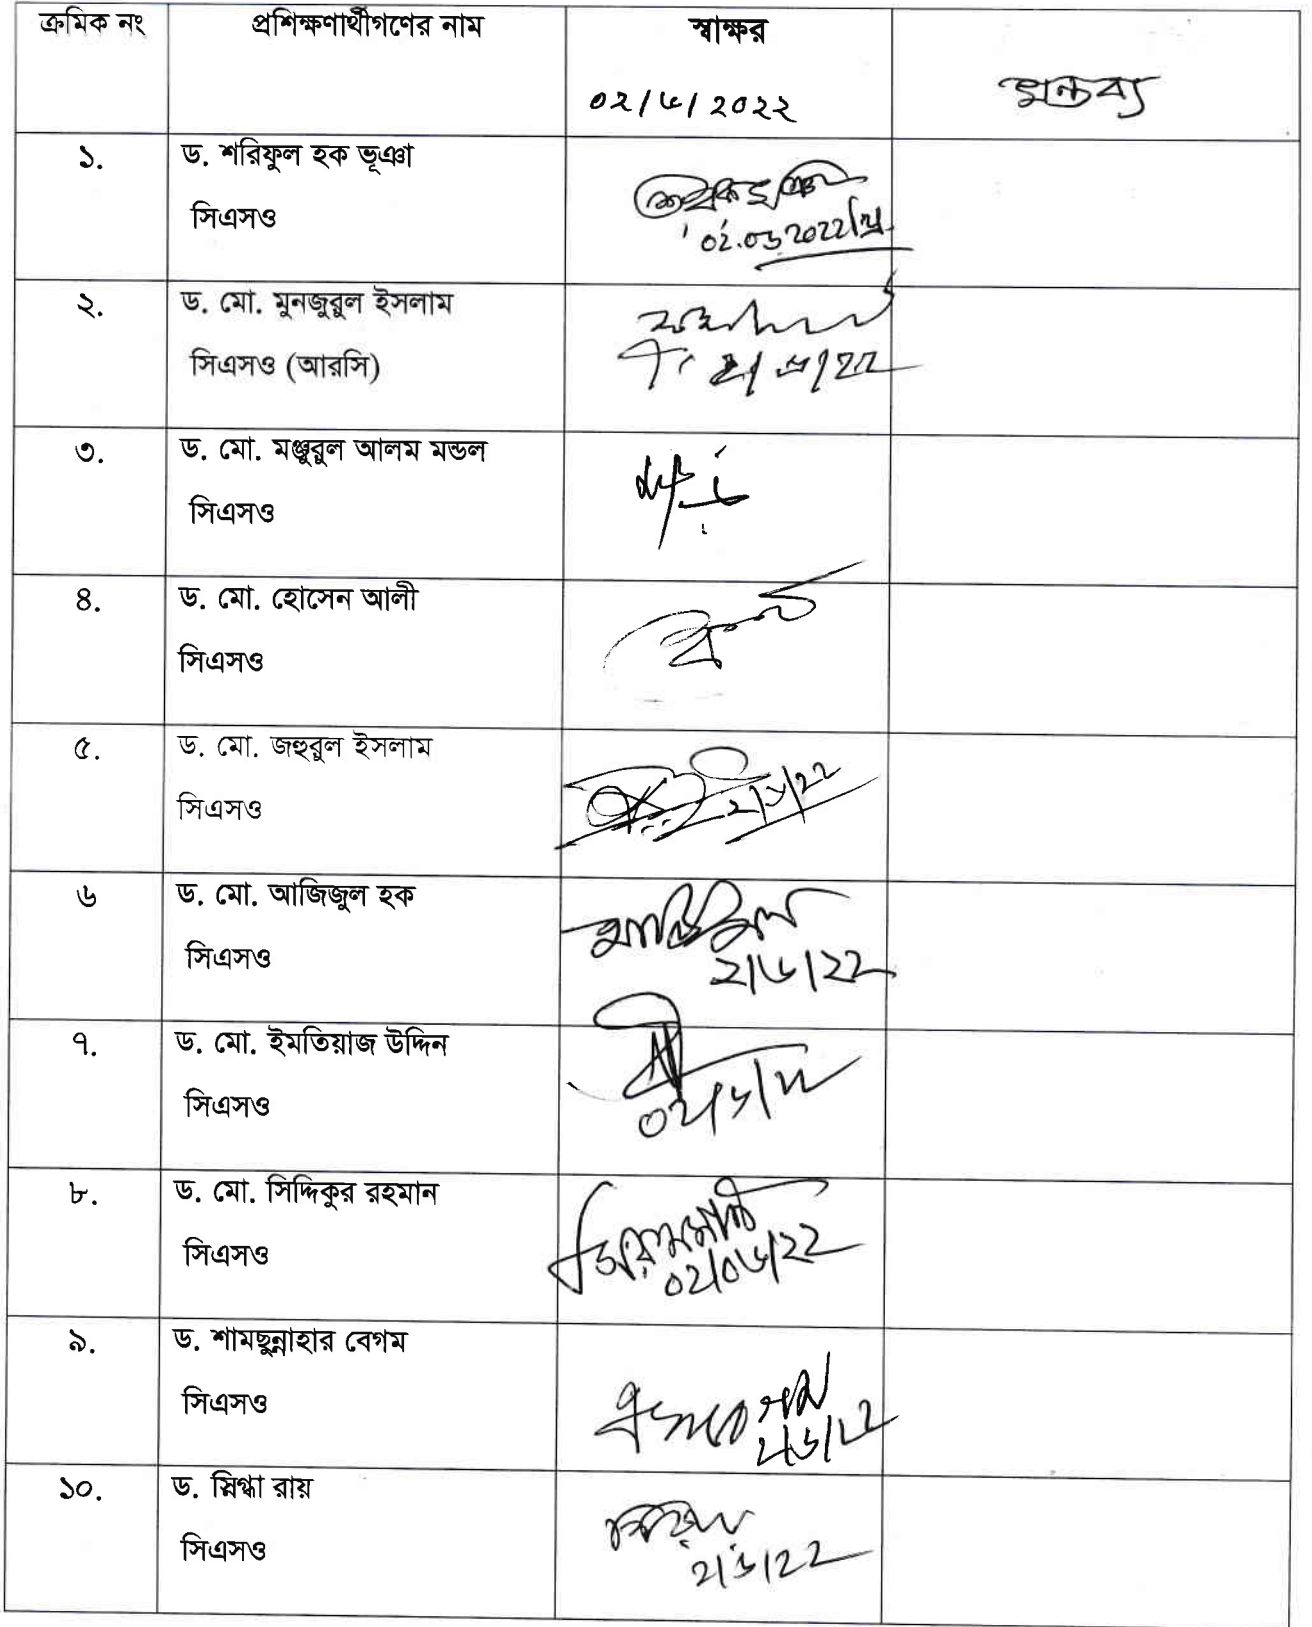 ক্রমিক নং প্রশিক্ষণার্থীগণের নাম স্বাক্ষর
০২/৬/২০২২ মন্তব্য
১. ড. শরিফুল হক ভূঞা
সিএসও
02.06.2022
২. ড. মো. মুনজুরুল ইসলাম
সিএসও (আরসি)
৩. ড. মো. মঞ্জুরুল আলম মন্ডল
সিএসও
৪. ড. মো. হোসেন আলী
সিএসও
৫. ড. মো. জহুরুল ইসলাম
সিএসও ২/৬/২২
৬ ড. মো. আজিজুল হক
সিএসও ২/৬/২২
৭. ড. মো. ইমতিয়াজ উদ্দিন
সিএসও ০২/৬/২২
৮. ড. মো. সিদ্দিকুর রহমান
সিএসও ০২/০৬/২২
৯. ড. শামছুন্নাহার বেগম
সিএসও ২/৬/২২
১০. ড. স্নিগ্ধা রায়
সিএসও ২/৬/২২